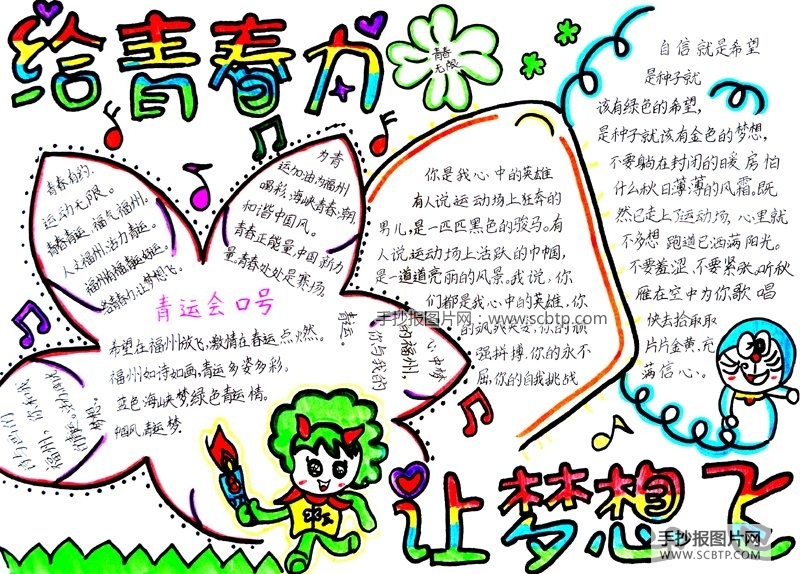 给青春力
青春
无限
自信就是希望
是种子就
该有绿色的希望,
是种子就该有金色的梦想,
不要躺在封闭的暖房怕
什么秋日薄薄的风霜.既
然已走上了运动场,心里就
不多想 跑道已洒满阳光。
不要羞涩,不要紧张。听秋
雁在空中为你歌唱
快去拾取
片片金黄,充
满信心。
你是我心中的英雄
有人说运动场上狂奔的
男儿,是一匹匹黑色的骏马。有
人说运动场上活跃的巾帼,
是一道道亮丽的风景。我说,你
们都是我心中的英雄,你
的飒飒英姿,你的顽
强拼搏,你的永不
屈,你的自我挑战
青春有约,
运动无限。
青春青运,福气福州。
人文福州,活力青运
给青春力,让梦想飞。
为青
运加油,为福州
喝彩,海峡青春潮,
和谐中国风。
青春正能量,中国新力
量。青春处处是赛场,
青运会口号
希望在福州放飞,激情在青运点燃。
福州如诗如画,青运多姿多彩。
蓝色海峡梦,绿色青运情。
中国风青运梦.
青运。
你与我的
的福州,
心中梦
手抄报图片网:www.scbtp.com
让梦想飞
手抄报图片网
WWW.SCBTP.COM